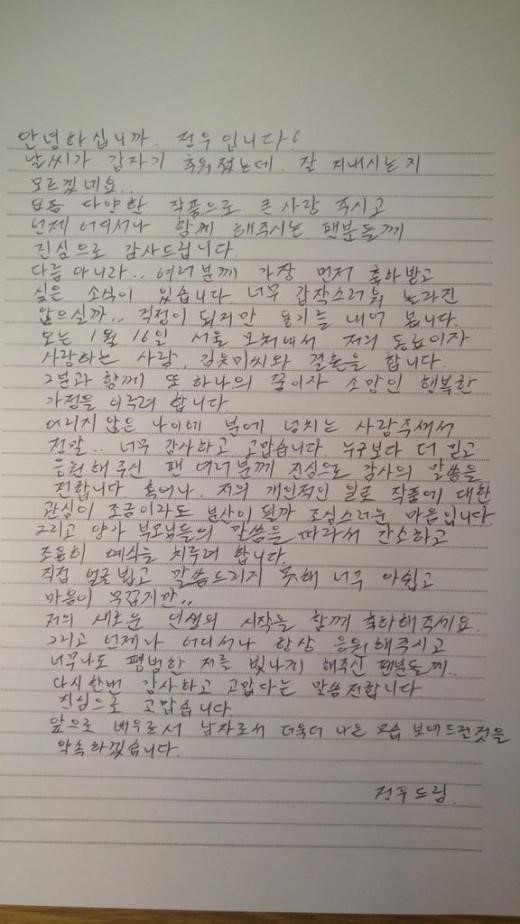 안녕하십니까. 정우입니다!
날씨가 갑자기 추워졌는데. 잘 지내시는지
모르겠네요..
요즘 다양한 작품으로 큰 사랑 주시고
언제 어디서나 함께 해주시는 팬분들께
진심으로 감사드립니다.
다름 아니라.. 여러분께 가장 먼저 축하받고
싶은 소식이 있습니다 너무 갑작스러워 놀라진
않으실까.. 걱정이 되지만 용기를 내어 봅니다.
오는 1월 16일 서울 모처에서 저의 동료이자
사랑하는 사람, 김유미씨와 결혼을 합니다.
그분과 함께 또 하나의 꿈이자 소망인 행복한
가정을 이루려 합니다.
어리지 않은 나이에 분에 넘치는 사랑주셔서
정말.. 너무 감사하고 고맙습니다. 누구보다 더 믿고
응원해주신 팬 여러분께 진심으로 감사의 말씀을
전합니다 혹여나. 저의 개인적인 일로 작품에 대한
관심이 조금이라도 분산이 될까 조심스러운 마음입니다
그리고 양가 부모님들의 말씀을 따라서 간소하고
조용히 예식을 치루려 합니다.
직접 얼굴뵙고 말씀드리지 못해 너무 아쉽고
마음이 무겁지만..
저의 새로운 인생의 시작을 함께 축하해주세요.
그리고 언제나 어디서나 항상 응원해주시고
너무나도 평범한 저를 빛나게 해주신 팬분들께..
다시한번 감사하고 고맙다는 말씀 전합니다
진심으로 고맙습니다
앞으로 배우로서 남자로서 더욱더 나은 모습 보여드릴것을
약속하겠습니다.
정우드림.